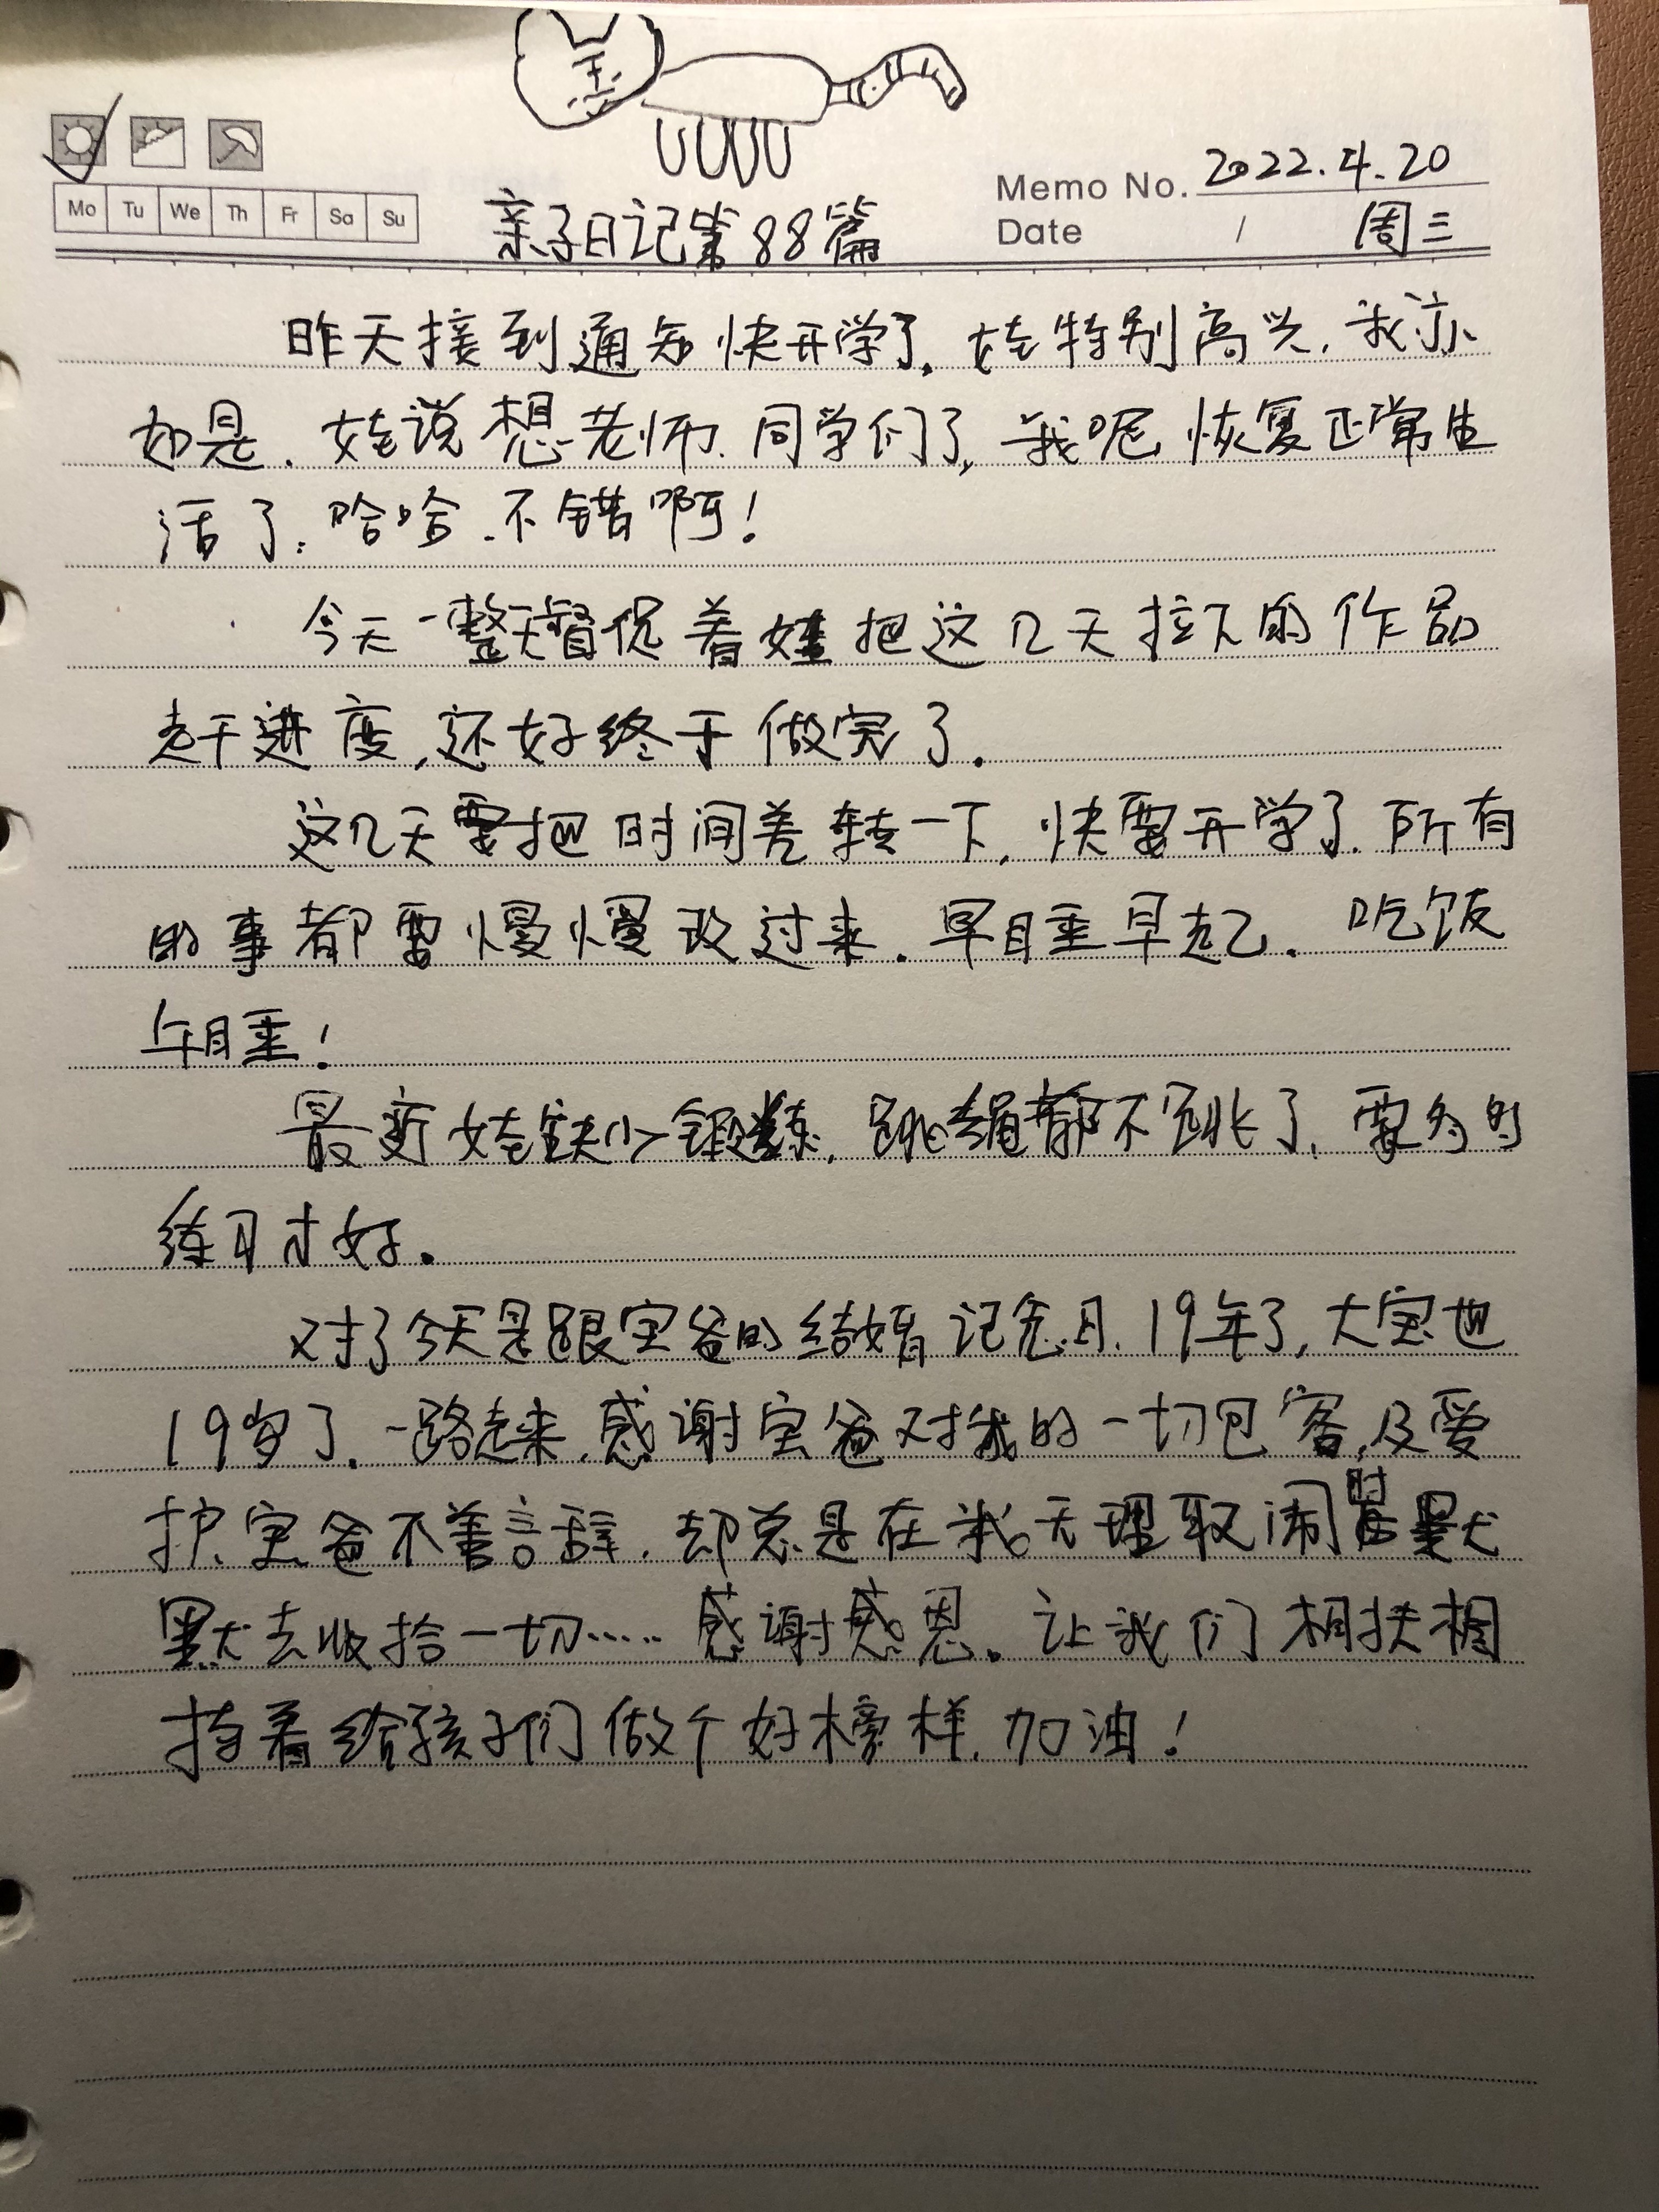 Mo Tu We Th Fr Sa Su
Memo No. 2022.4.20
Date / 周三
亲子日记第88篇
昨天接到通知快开学了,娃特别高兴,我亦
如是.娃说想老师.同学们了,我呢恢复正常生
活了.哈哈.不错啊!
今天一整天督促着娃把这几天拉下的作品
赶进度,还好终于做完了.
这几天要把时间差转一下,快要开学了.所有
的事都要慢慢改过来.早睡早起.吃饭
午睡!
最近娃缺少锻炼,跳绳都不跳了,要多多
练习才好.
对了今天是跟宝爸的结婚记念日.19年了,大宝也
19岁了.一路走来,感谢宝爸对我的一切包容,及爱
护.宝爸不善言辞.却总是在我无理取闹时默
默去收拾一切……感谢感恩.让我们相扶相
持着给孩子们做个好榜样.加油!